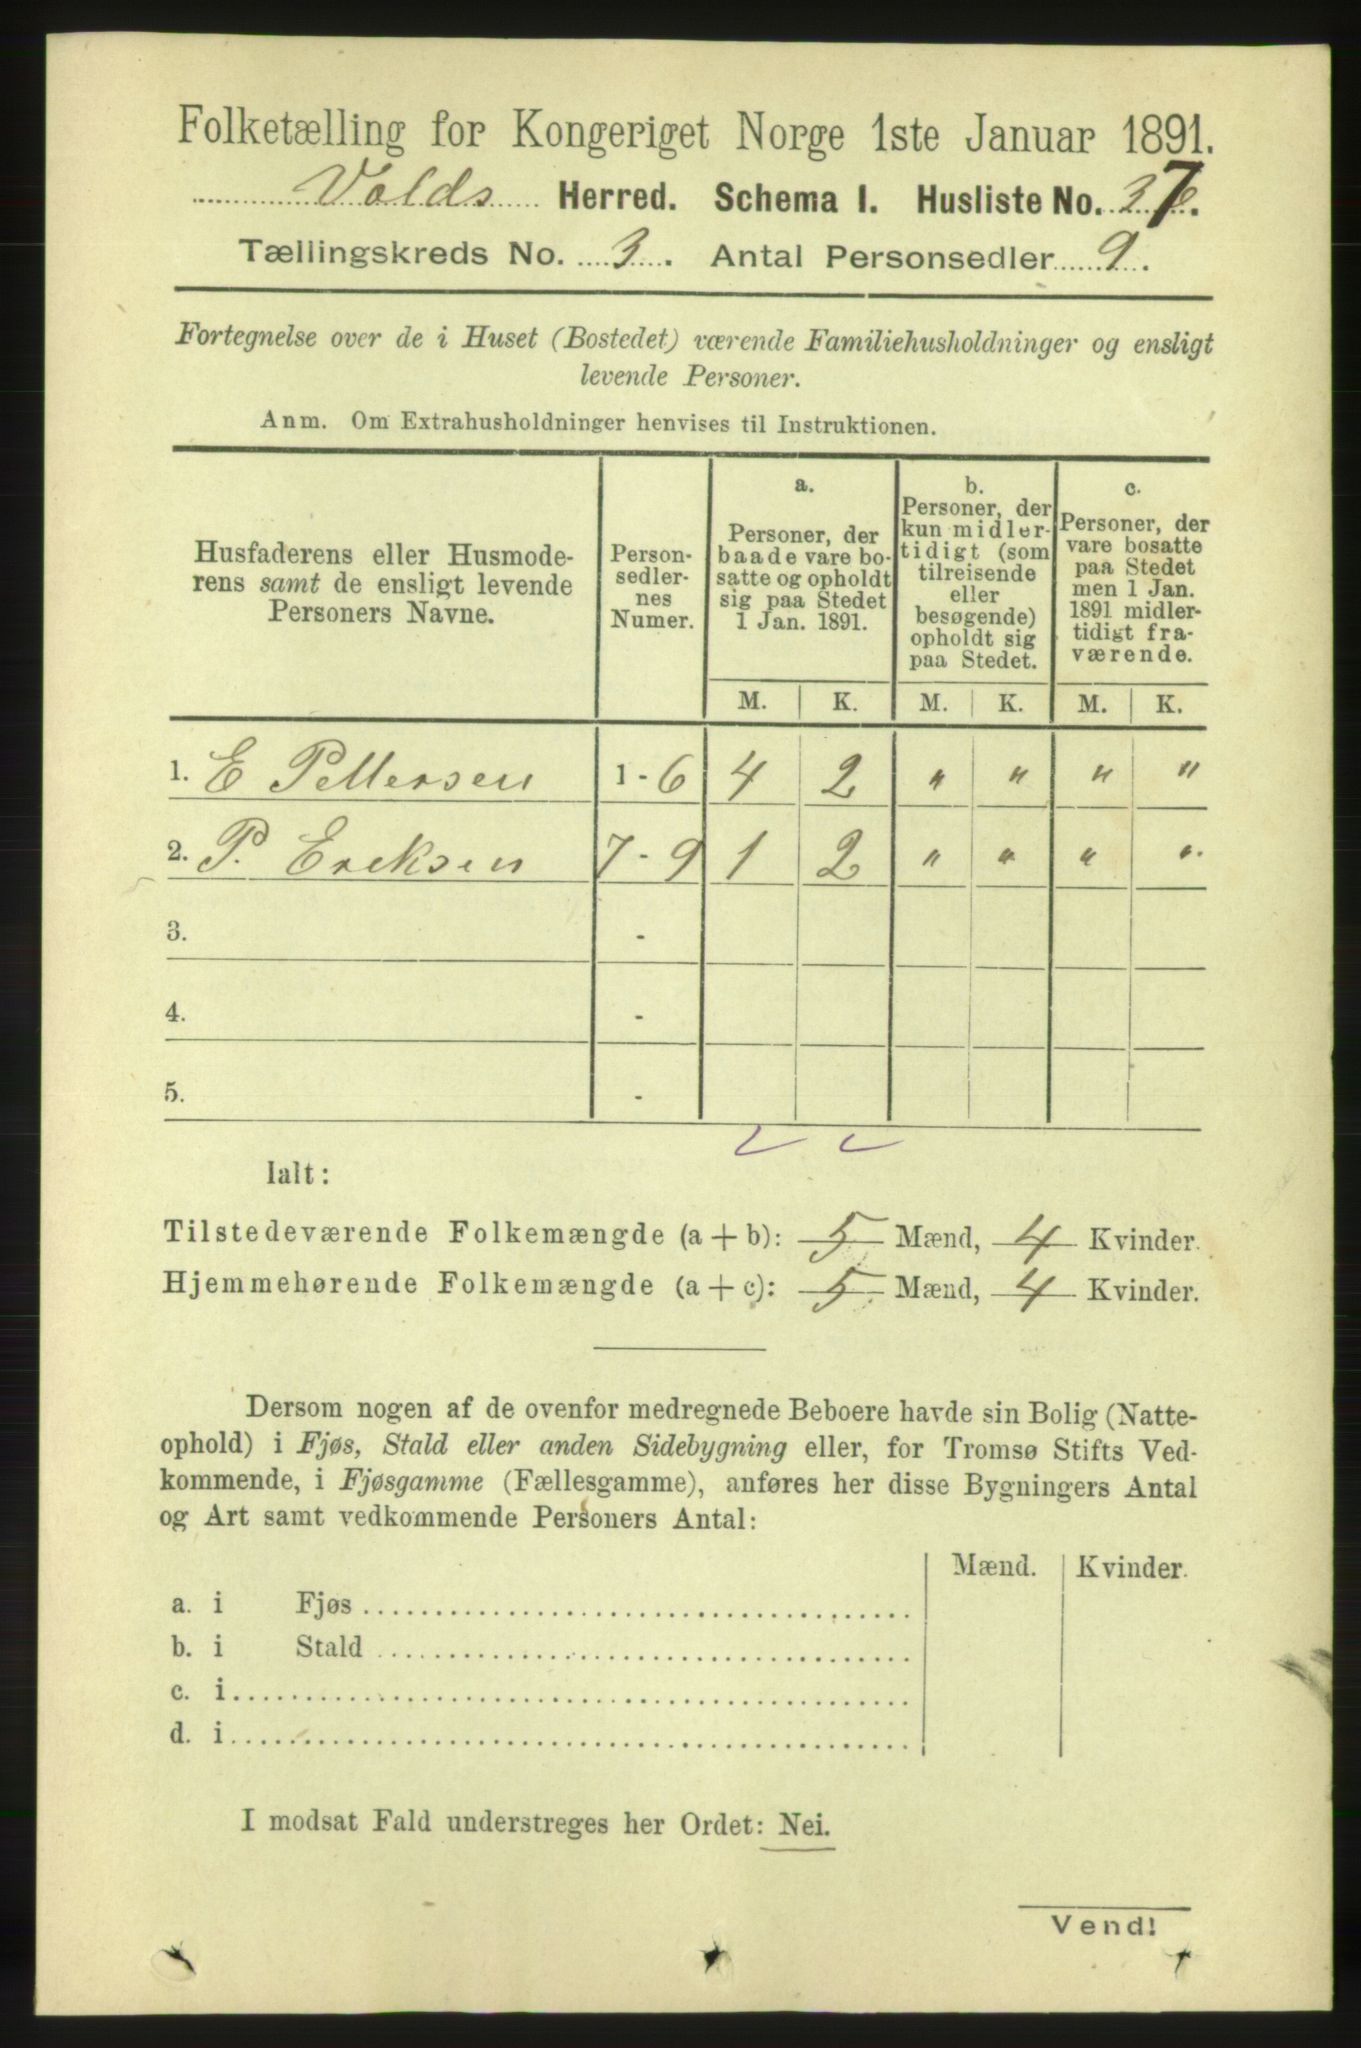 Folketælling for Kongeriget Norge 1ste Januar 1891.
Volds Herred. Schema I. Husliste No. 37.
Tællingskreds No. 3. Antal Personsedler 9.
Fortegnelse over de i Huset (Bostedet) værende Familiehusholdninger og ensligt
levende Personer.
Anm. Om Extrahusholdninger henvises til Instruktionen.
Husfaderens eller Husmode-
rens samt de ensligt levende
Personers Navne.
Person-
sedler-
nes
Numer.
a.
Personer, der
baade vare bo-
satte og opholdt
sig paa Stedet
1 Jan. 1891.
b.
Personer, der
kun midler-
tidigt (som
tilreisende
eller
besøgende)
opholdt sig
paa Stedet.
c.
Personer, der
vare bosatte
paa Stedet
men 1 Jan.
1891 midler-
tidigt fra-
værende.
M. K. M. K. M. K.
1. E Pettersen 1 - 6 4 2 " " " "
2. P. Ereksen 7 - 9 1 2 " " " "
3. -
4. -
5. -
Ialt:
Tilstedeværende Folkemængde (a + b): 5 Mænd, 4 Kvinder.
Hjemmehørende Folkemængde (a + c): 5 Mænd, 4 Kvinder.
Dersom nogen af de ovenfor medregnede Beboere havde sin Bolig (Natte-
ophold) i Fjøs, Stald eller anden Sidebygning eller, for Tromsø Stifts Ved-
kommende, i Fjøsgamme (Fællesgamme), anføres her disse Bygningers Antal
og Art samt vedkommende Personers Antal:
Mænd. Kvinder.
a. i Fjøs
b. i Stald
c. i
d. i
I modsat Fald understreges her Ordet: Nei.
Vend!